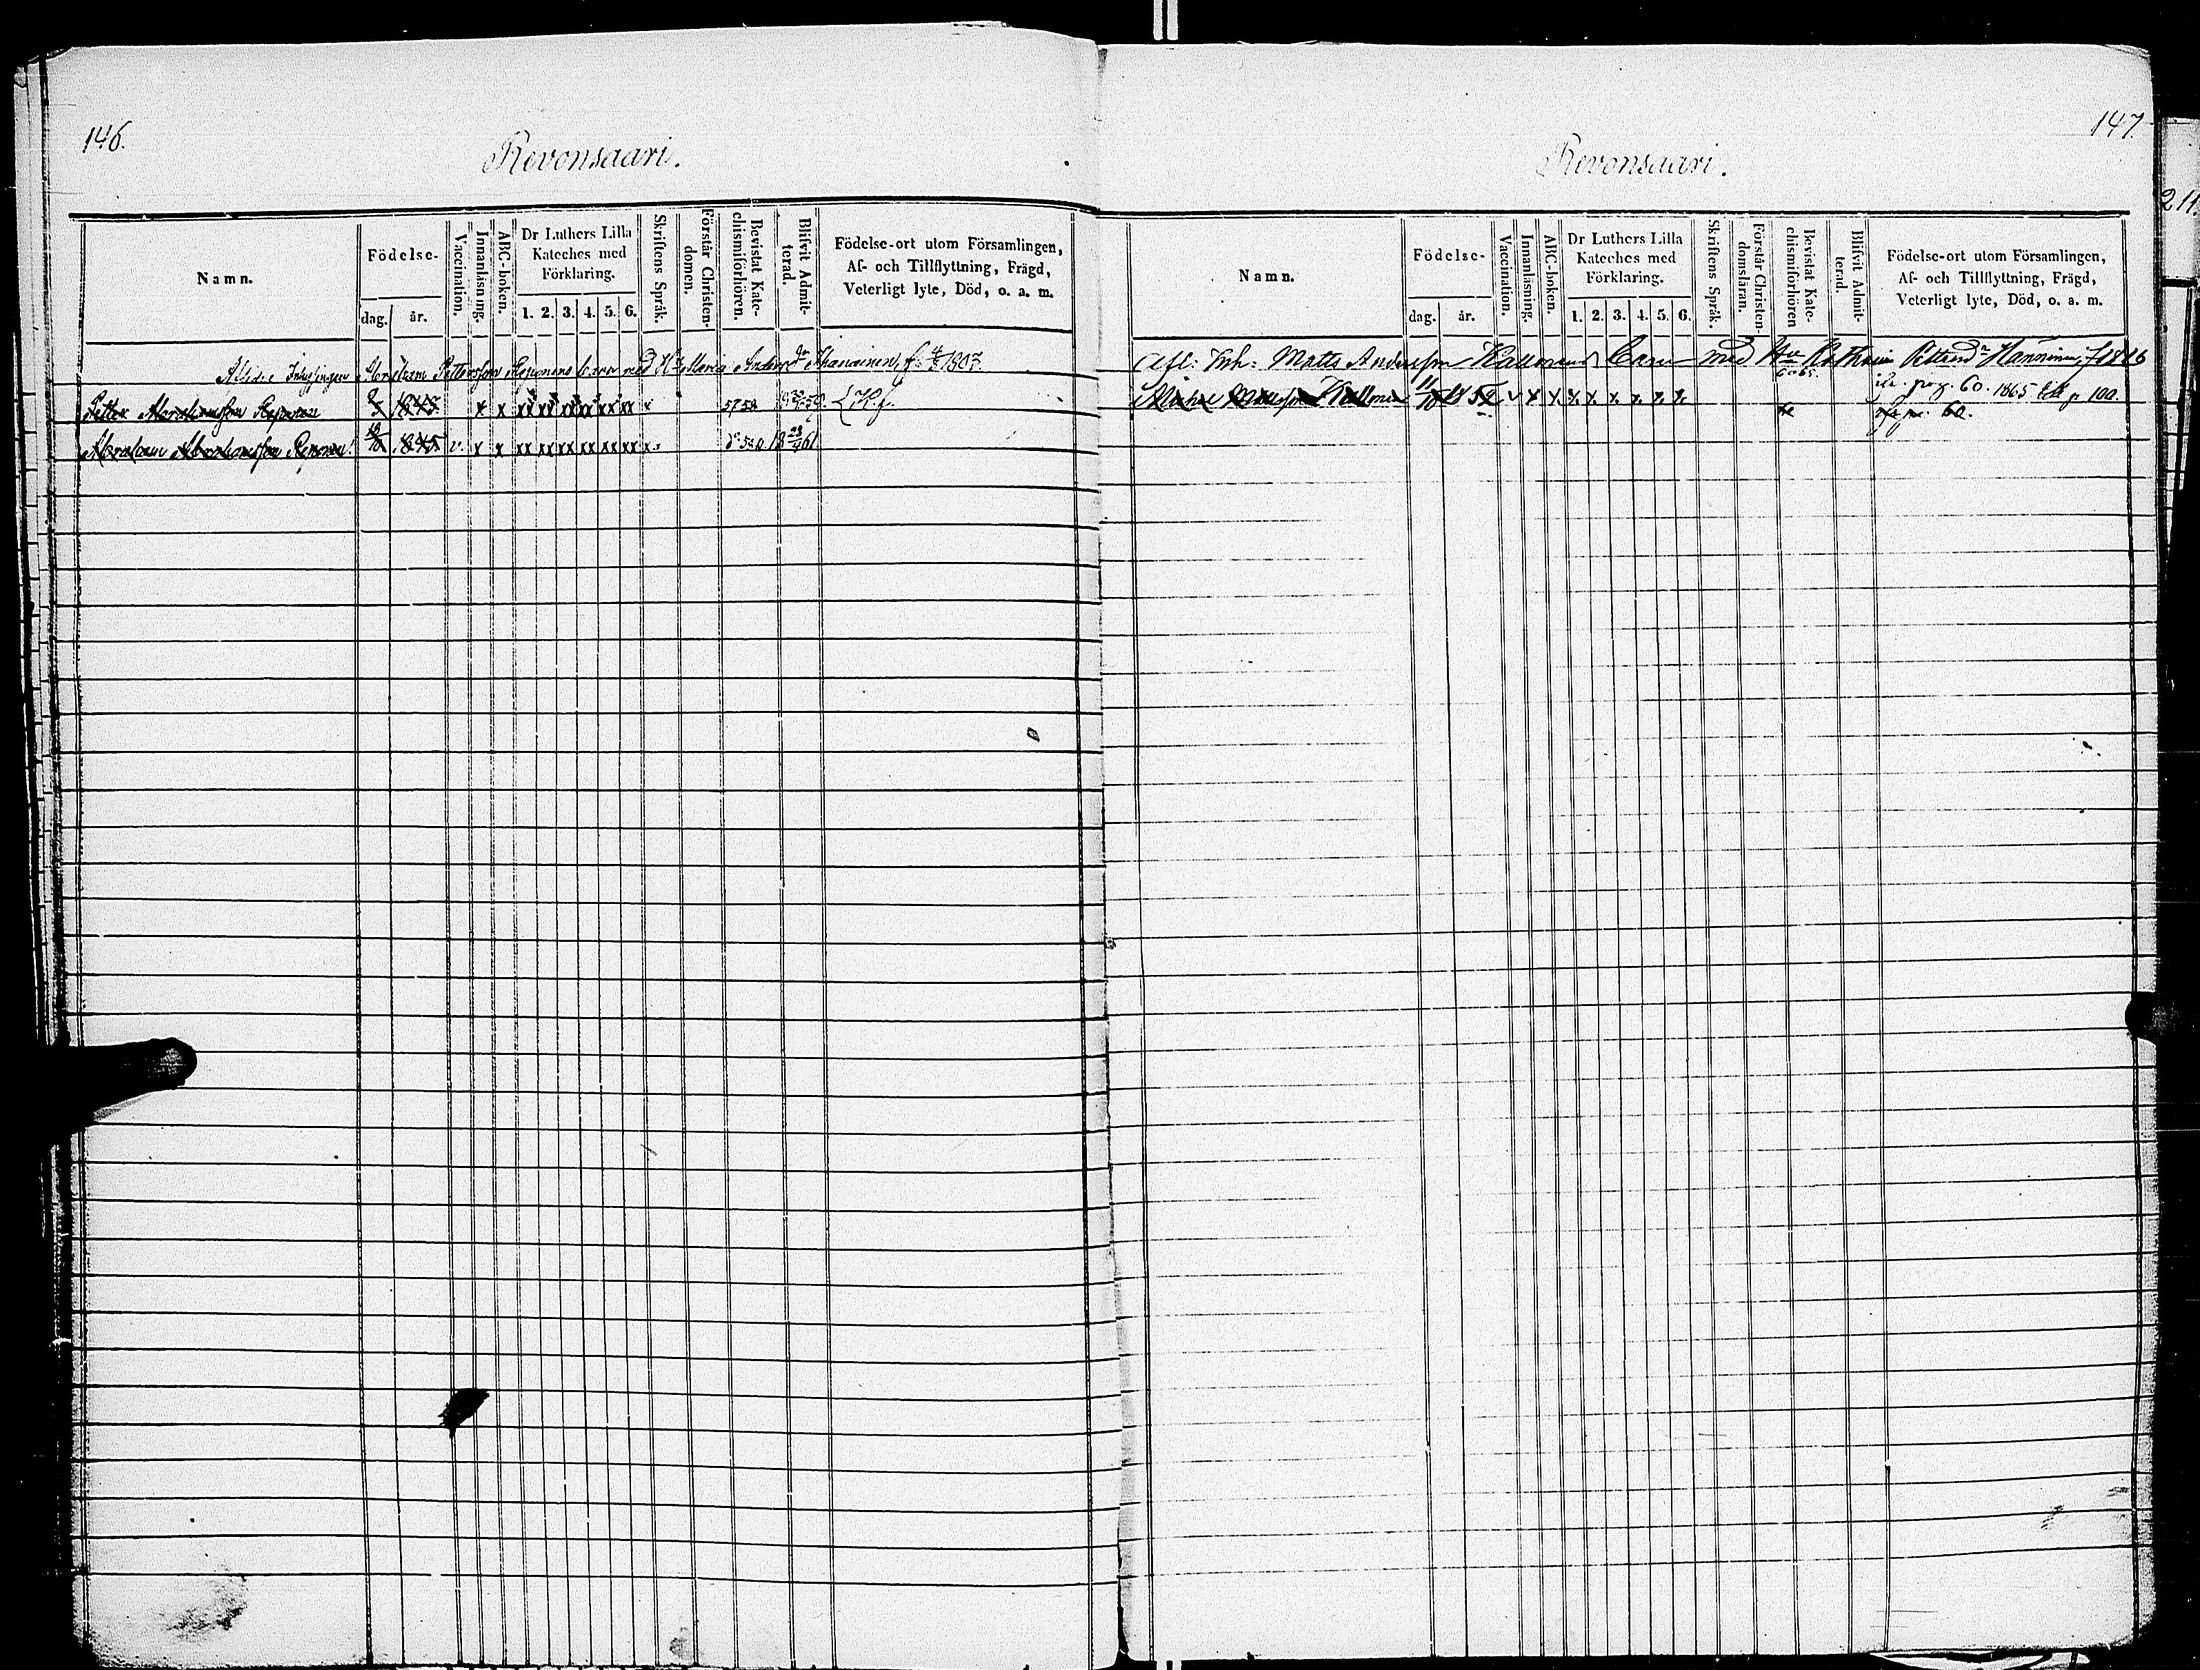 146.
Revonsaari.
Namn.
Födelse-
dag.
år.
Vaccination.
Innanläsning.
ABC-boken.
Dr Luthers Lilla
Kateches med
Förklaring.
1. 2. 3. 4. 5. 6.
Skriftens Språk.
Förstår Christen-
domen.
Bevistat Kate-
chismiförhören.
Blifvit Admit-
terad.
Födelse-ort utom Församlingen,
Af- och Tillflyttning, Frägd,
Veterligt lyte, Död, o. a. m.
Abraham Pettersson Reponens barn med Maria Ihanainen, f. 1807.
Petter Abrahamsson Reponen 1843 x x xx xx xx xx xx xx x 57 58
Abraham Abrahamsson Reponen 1845 v. x x xx xx xx xx xx xx x
147
Revonsaari.
Namn.
Födelse-
dag.
år.
Vaccination.
Innanläsning.
ABC-boken.
Dr Luthers Lilla
Kateches med
Förklaring.
1. 2. 3. 4. 5. 6.
Skriftens Språk.
Förstår Christen-
domsläran.
Bevistat Kate-
chismiförhören
Blifvit Admit-
terad.
Födelse-ort utom Församlingen,
Af- och Tillflyttning, Frägd,
Veterligt lyte, Död, o. a. m.
Afl: Inh: Matts Andersson Kallonens Barn med Hu Petersdr Hänninen, f 1826
pag. 60. 1865 p. 100.
Mattsson Kallonen 11/10 1852 v x x. x. x. x. x. x. x.
60.
211.